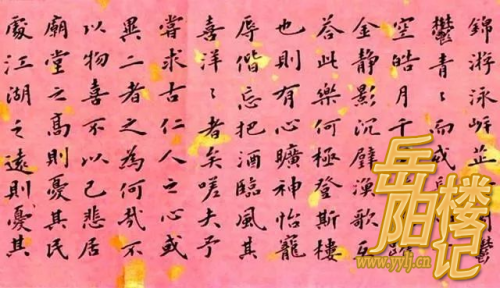 錦游泳岸芷鬱
鬱青々而或
空皓月千
金静影沉璧漁歌互
答此樂何極登斯樓
也則有心曠神怡寵
辱偕忘把酒臨風其
喜洋々者矣嗟夫予
嘗求古仁人之心或
異二者之為何哉不
以物喜不以己悲居
廟堂之高則憂其民
處江湖之遠則憂其
岳阳楼记
www.yylj.cn